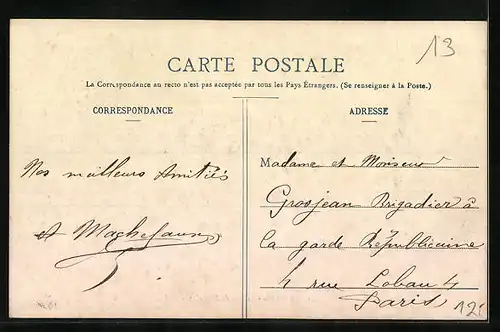 13
CARTE POSTALE
La Correspondance au recto n'est pas acceptée par tous les Pays Étrangers. (Se renseigner à la Poste.)
CORRESPONDANCE
ADRESSE
Nos meilleurs Amitiés
Madame et Monsieur
Grosjean Brigadier à
la garde Républicaine
4 rue Lobau 4
Paris
12